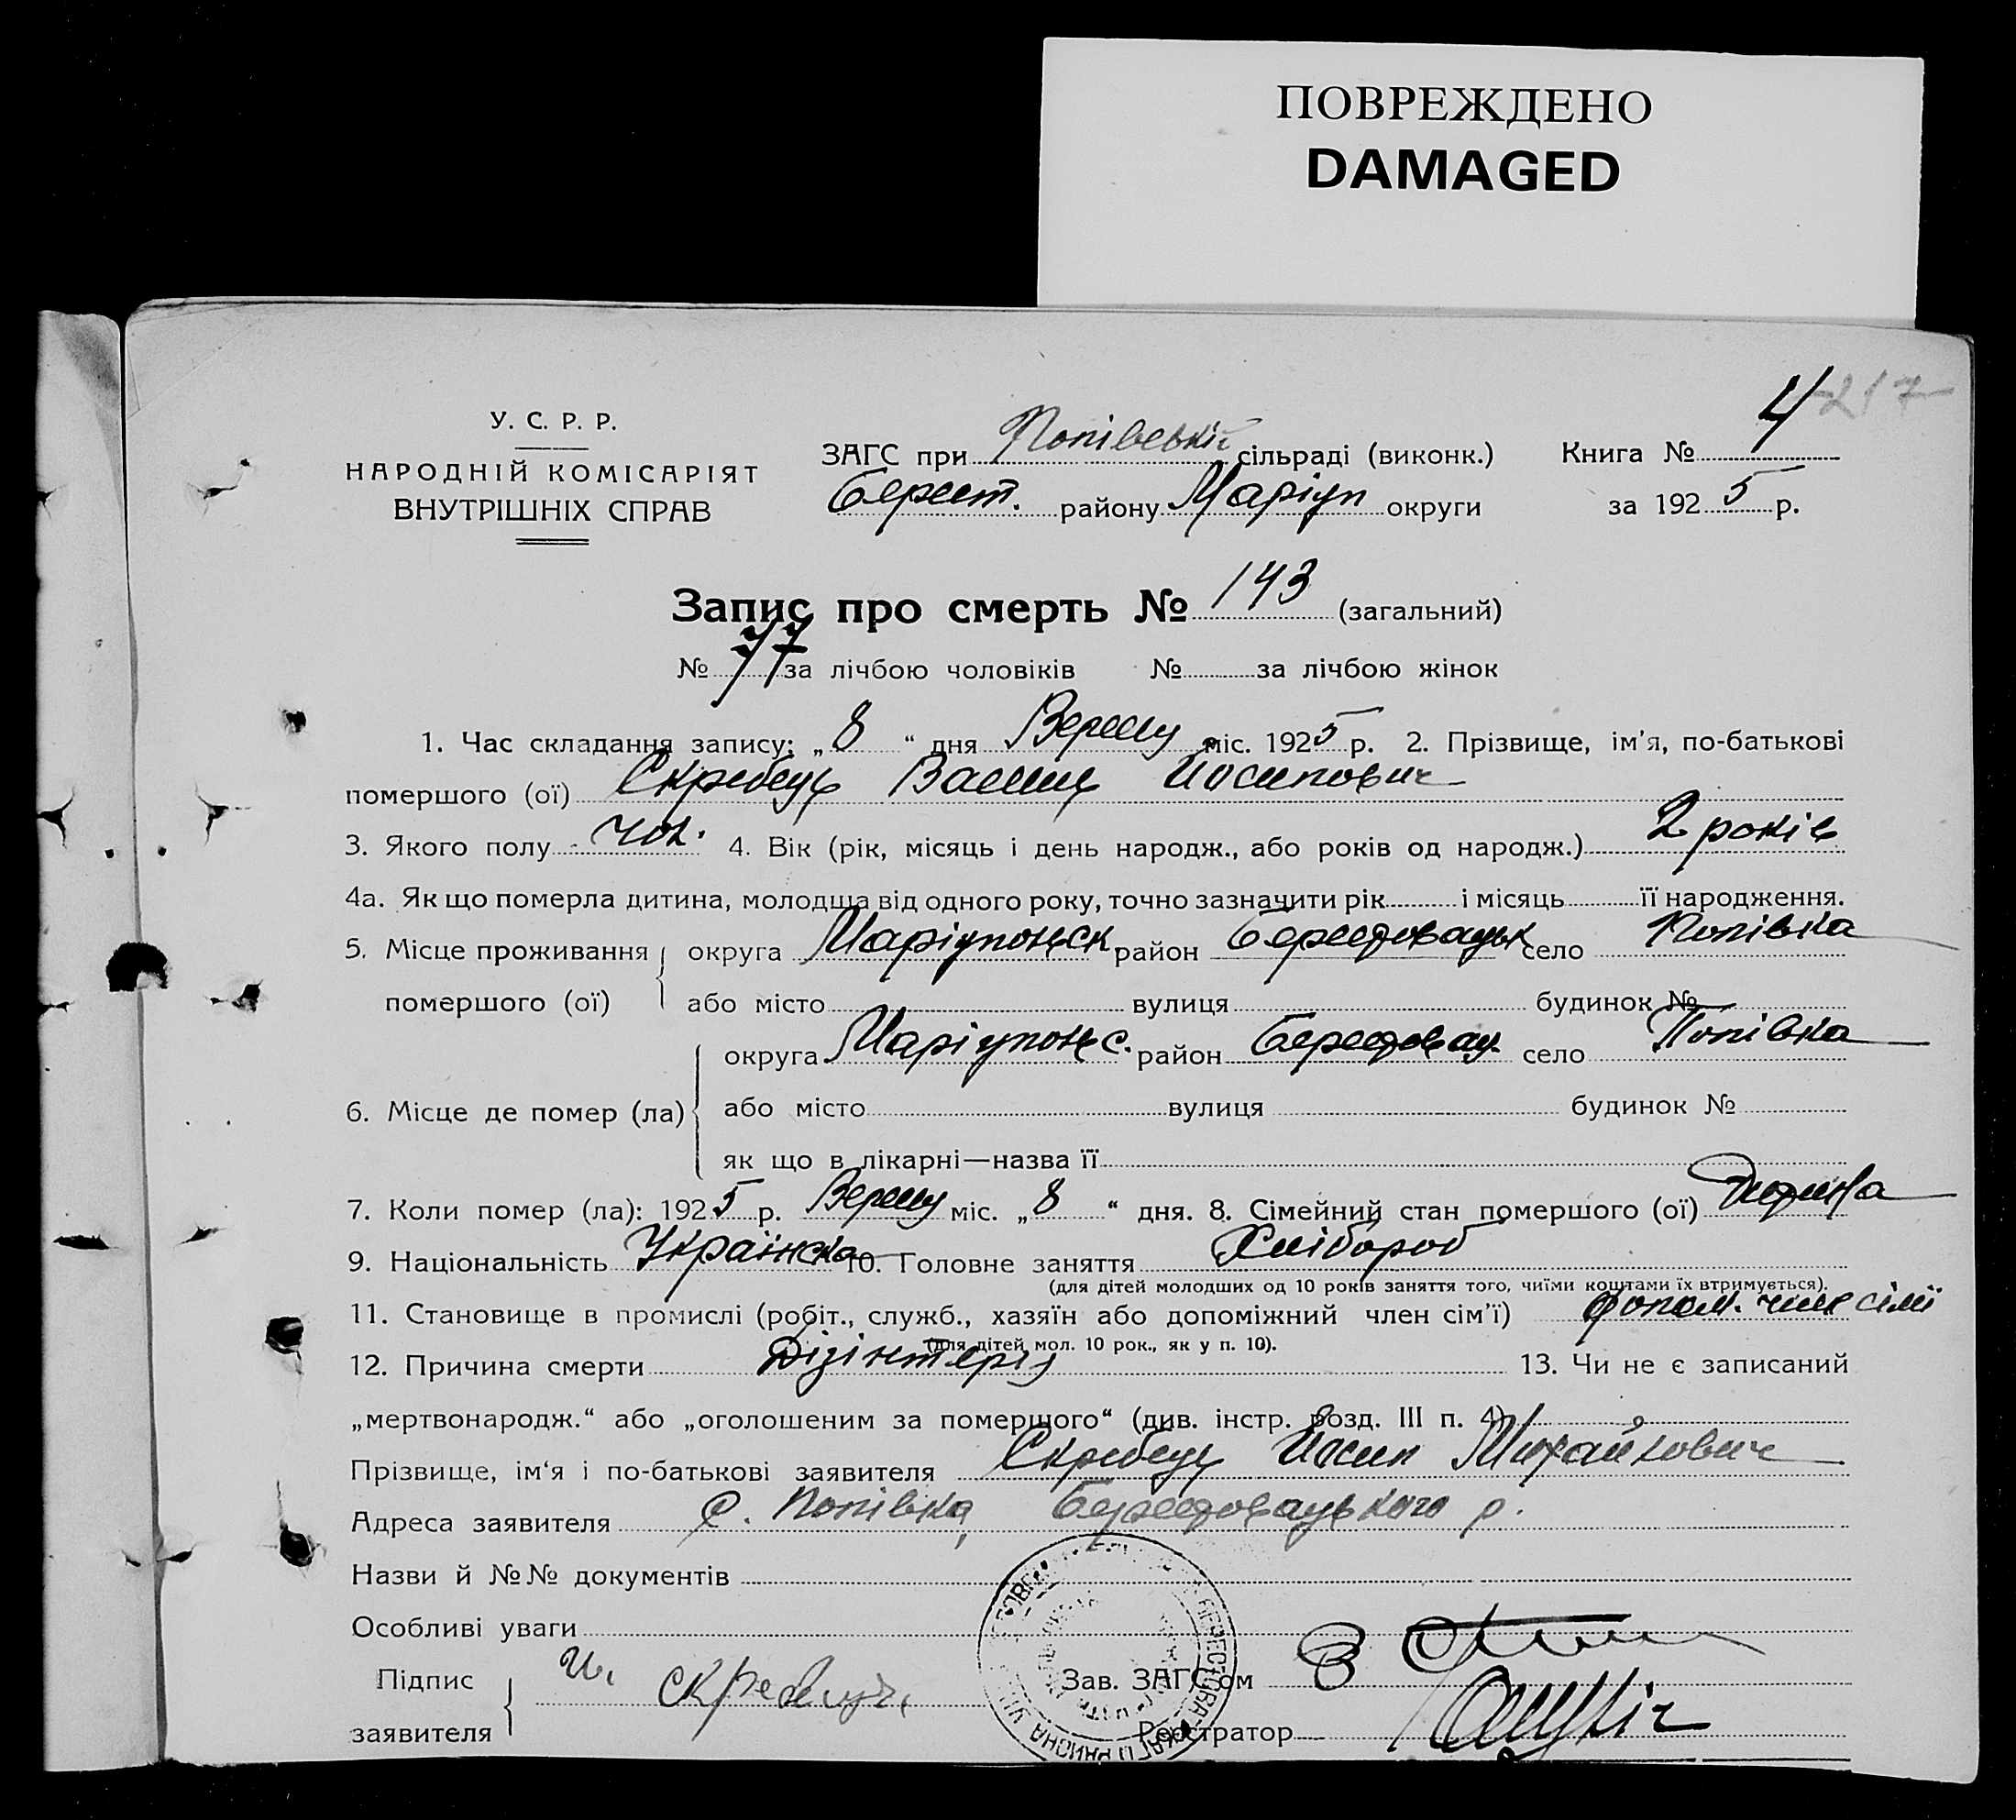 ПОВРЕЖДЕНО
DAMAGED
217
У. С. Р. Р.
НАРОДНІЙ КОМІСАРІЯТ
ВНУТРІШНІХ СПРАВ
ЗАГС при Попівській сільраді (виконк.)
Берест. району Маріуп округи
Книга № 4
за 1925 р.
Запис про смерть № 143 (загальний)
№ 77 за лічбою чоловіків № за лічбою жінок
1. Час складання запису: „8“ дня Вересн міс. 1925 р. 2. Прізвище, ім'я, по-батькові
помершого (ої) Скребець Василь Йосипович
3. Якого полу чол. 4. Вік (рік, місяць і день народж., або років од народж.) 2 років
4а. Як що померла дитина, молодша від одного року, точно зазначити рік і місяць її народження.
5. Місце проживання округа Маріупольск район Берестовацьк село Попівка
помершого (ої) або місто вулиця будинок №
округа Маріупольс. район Берестовац. село Попівка
6. Місце де помер (ла) або місто вулиця будинок №
як що в лікарні—назва її
7. Коли помер (ла): 1925 р. Вересн міс. „8“ дня. 8. Сімейний стан помершого (ої) Дитина
9. Національність Українська 10. Головне заняття Хлібороб
(для дітей молодших од 10 років заняття того, чиїми коштами їх втримується).
11. Становище в промислі (робіт., служб., хазяїн або допоміжний член сім'ї) допом. член сімї
(для дітей мол. 10 рок., як у п. 10).
12. Причина смерти Дізінтерія 13. Чи не є записаний
„мертвонародж.“ або „оголошеним за померщого“ (див. інстр. розд. III п. 4)
Прізвище, ім'я і по-батькові заявителя Скребець Йосип Михайлович
Адреса заявителя с. Попівка, Берестовацького р.
Назви й №№ документів
Особливі уваги
Підпис
заявителя
Зав. ЗАГС'ом
Реєстратор